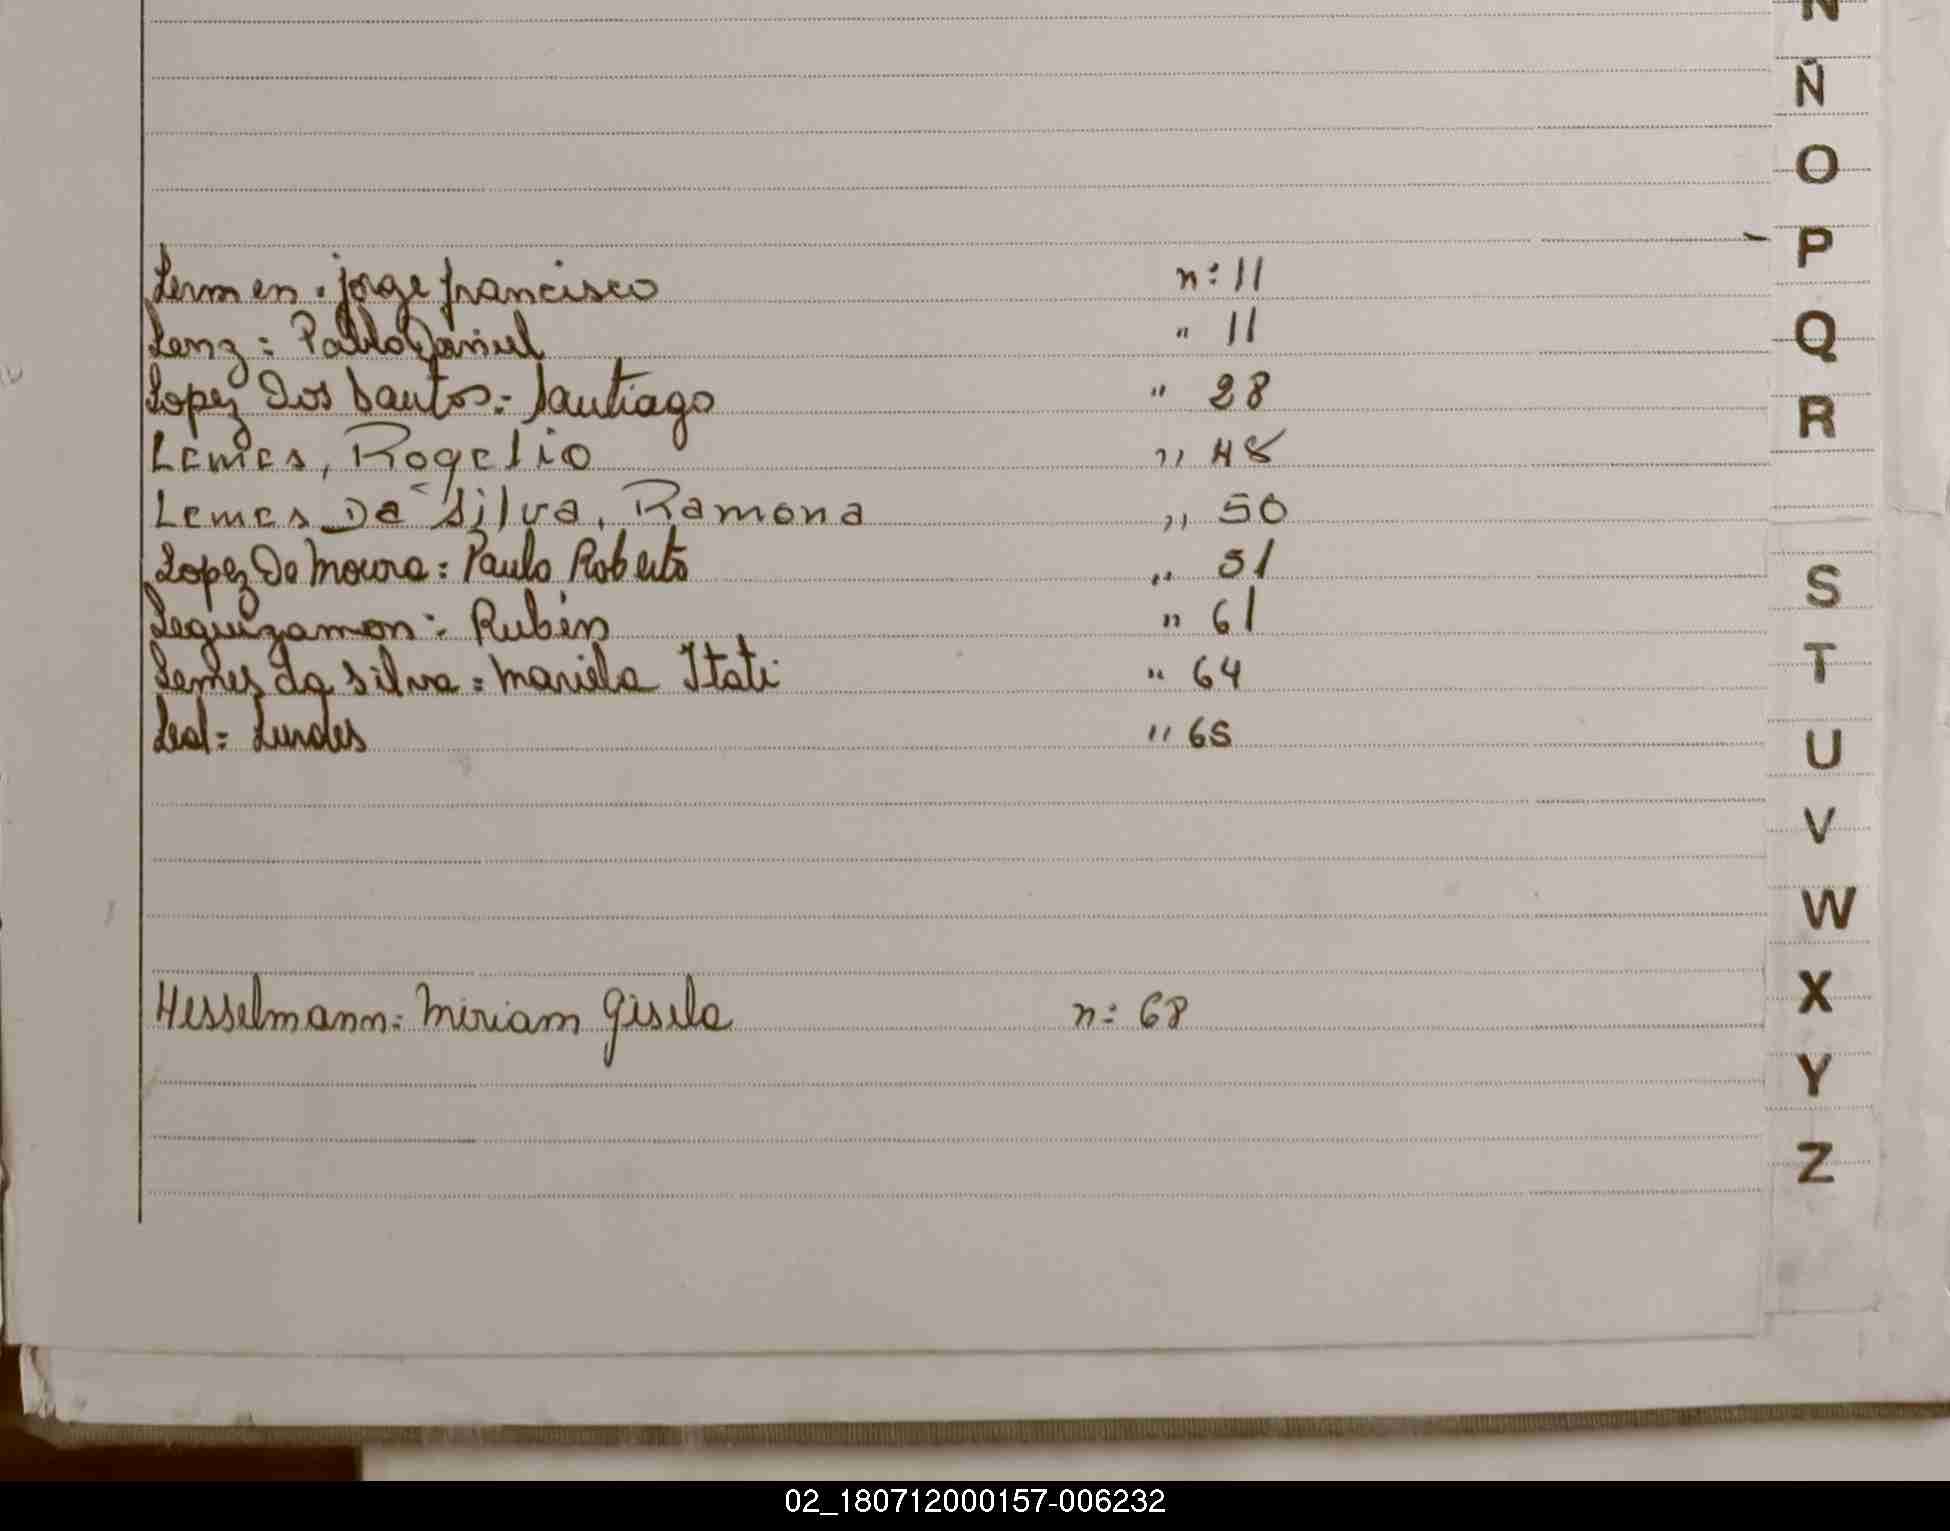 N
Ñ
O
P
Lermen: jorge francisco n: 11
Lenz: Pablo Daniel " 11
Q
Lopez Dos Santos: Santiago " 28
R
Lemes, Rogelio " 48
Lemes Da Silva, Ramona " 50
Lopez De Moura: Paulo Roberto " 51
S
Leguizamon: Rubén " 61
Lemes da Silva: Mariela Itati " 64
T
Leal: Lurdes " 65
U
V
W
X
Hesselmann: Miriam Gisela n: 68
Y
Z
02_180712000157-006232